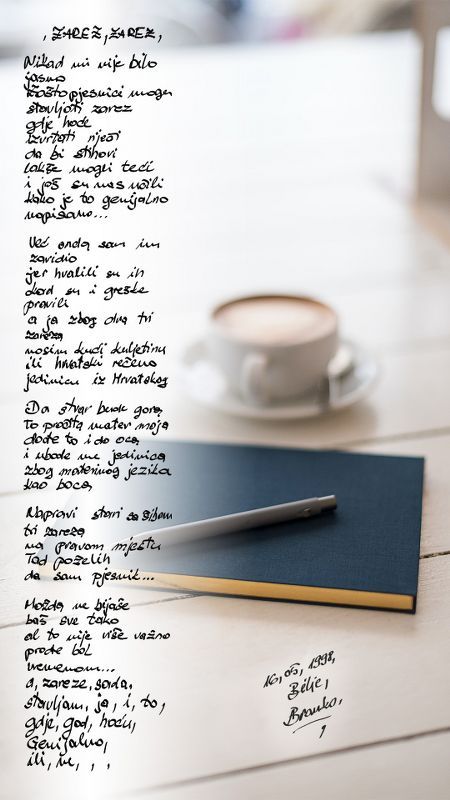 , ZAREZ, ZAREZ,
Nikad mi nije bilo
jasno
zašto pjesnici mogu
stavljati zarez
gdje hoće
izvrtati riječi
da bi stihovi
lakše mogli teći
i još su nas učili
kako je to genijalno
napisano...
Već onda sam im
zavidio
jer hvalili su ih
dok su i greške
pravili
a ja zbog dva tri
zareza
nosim kući kuljetinu
ili hrvatski rečeno
jedinicu iz Hrvatskog
Da stvar bude gora,
To pročita mater moja
dođe to i do oca,
i ubode me jedinica
zbog materinog jezika
kao boca,
Napravi stari sa šibom
tri zareza
na pravom mjestu
Tad poželih
da sam pjesnik...
Možda ne bijaše
baš sve tako
al to nije više važno
prođe bol
vremenom...
a, zareze, sada,
stavljam, ja, i, to,
gdje, god, hoću,
Genijalno,
ili, ne, , ,
16, 05, 1998,
Bilje,
Branko,
,